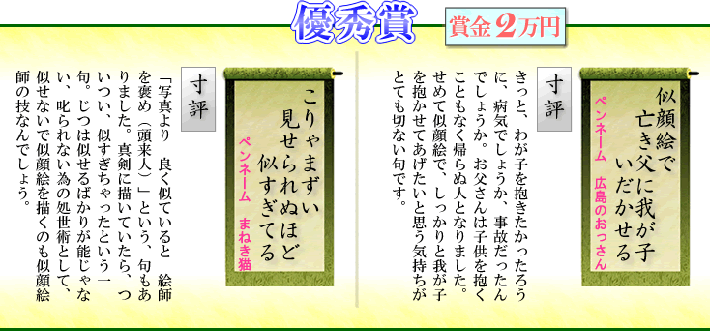 優秀賞
賞金2万円
似顔絵で
亡き父に我が子
いだかせる
ペンネーム　広島のおっさん
寸評
きっと、わが子を抱きたかったろう
に、病気でしょうか、事故だったん
でしょうか。お父さんは子供を抱く
こともなく帰らぬ人となりました。
せめて似顔絵で、しっかりと我が子
を抱かせてあげたいと思う気持ちが
とても切ない句です。
こりゃまずい
見せられぬほど
似すぎてる
ペンネーム　まねき猫
寸評
「写真より　良く似ていると　絵師
を褒め（頭来人）」という、句もあ
りました。真剣に描いていたら、つ
いつい、似すぎちゃったという一
句。じつは似せるばかりが能じゃな
い、叱られない為の処世術として、
似せないで似顔絵を描くのも似顔絵
師の技なんでしょう。